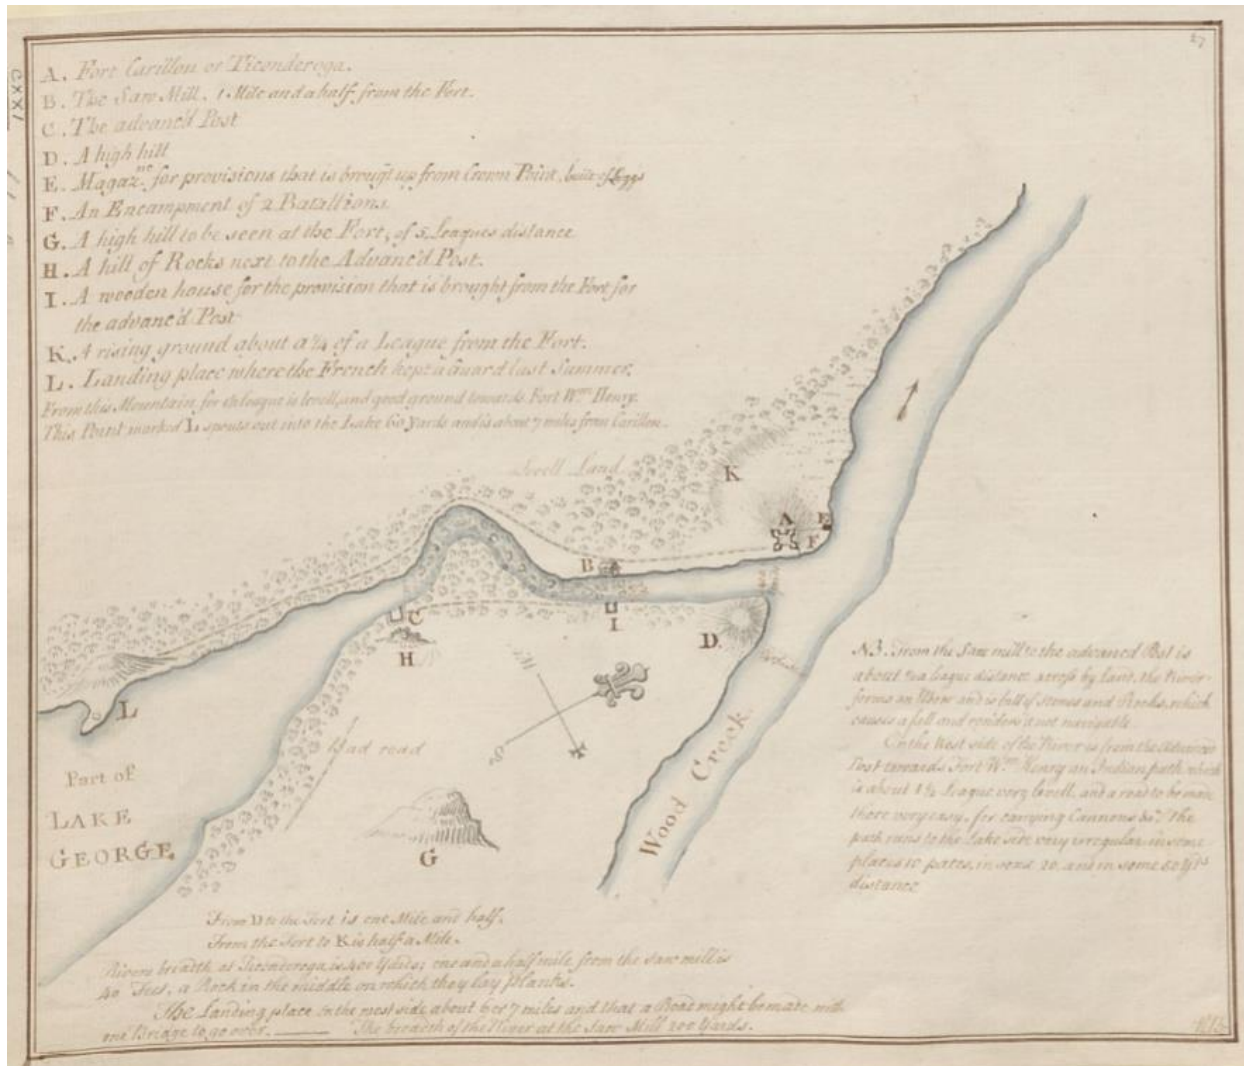 27
CXXI
A. Fort Carillon or Ticonderoga.
B. The Saw Mill. 1 Mile and a half from the Fort.
C. The advanc'd Post
D. A high hill
E. Magazne. for provisions that is brougt up from Crown Point, built of Loggs
F. An Encampment of 2 Batallions.
G. A high hill to be seen at the Fort, of 5 Leagues distance
H. A hill of Rocks next to the Advanc'd Post.
I. A wooden house for the provision that is brought from the Fort for
the advanc'd Post
K. A rising ground about a 1/4 of a League from the Fort.
L. Landing place where the French kept a Guard last Summer.
From this Mountain for league is levell, and good ground towards Fort Wm. Henry.
This Point marked L spouts out into the Lake 60 yards and is about 7 miles from Carillon.
Levell Land
K
A
E
F
B
C
I
D.
H
L
Bad road
G
Part of
LAKE
GEORGE.
Wood Creek.
NB. From the Saw mill to the advanced Post is
about league distance across by land, the River
forms an Elbow and is full of stones and Rocks, which
causes a fall and renders it not navigable.
On the West side of the River is from the Advanced
Post towards Fort Wm. Henry an Indian path which
is about 1 1/2 League very levell, and a road to be made
there very easy, for carrying Cannons &c. The
path runs to the Lake side very irregular, in some
places 10 paces, in 20, and in some 50 Yds
distance
From D to the Fort is one Mile and half.
From the Fort to K is half a Mile.
Rivers breadth at Ticonderoga is 400 Yards; one and a half mile from the saw mill is
40 Feet, a Rock in the middle on which they lay Planks.
The Landing place on the west side about 6 or 7 miles and that a Road might be made with
one Bridge to go over. The breadth of the River at the Saw Mill 200 Yards.